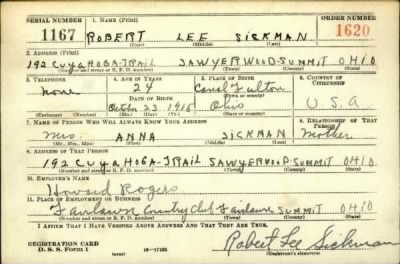 SERIAL NUMBER 1. NAME (Print) ORDER NUMBER
1167 ROBERT LEE SICKMAN 1620
(First) (Middle) (Last)
2. ADDRESS (Print)
192 CUYAHOGA-TRAIL SAWYERWOOD-SUMMIT OHIO
(Number and street or R. F. D. number) (Town) (County) (State)
3. TELEPHONE 4. AGE IN YEARS 5. PLACE OF BIRTH 6. COUNTRY OF CITIZENSHIP
none 24 Canal Fulton
DATE OF BIRTH (Town or county)
October 23 1915 Ohio U.S.A
(Exchange) (Number) (Mo.) (Day) (Yr.) (State or country)
7. NAME OF PERSON WHO WILL ALWAYS KNOW YOUR ADDRESS 8. RELATIONSHIP OF THAT PERSON
Mrs. ANNA SICKMAN Mother
(Mr., Mrs., Miss) (First) (Middle) (Last)
9. ADDRESS OF THAT PERSON
192 CUYAHOGA-TRAIL SAWYERWOOD-SUMMIT OHIO
(Number and street or R. F. D. number) (Town) (County) (State)
10. EMPLOYER'S NAME
Howard Rogers
11. PLACE OF EMPLOYMENT OR BUSINESS
Fairlawn Country Club-Fairlawn SUMMIT OHIO
(Number and street or R. F. D. number) (Town) (County) (State)
I AFFIRM THAT I HAVE VERIFIED ABOVE ANSWERS AND THAT THEY ARE TRUE.
REGISTRATION CARD
D. S. S. Form 1 16—17105 Robert Lee Sickman
(Registrant's signature)